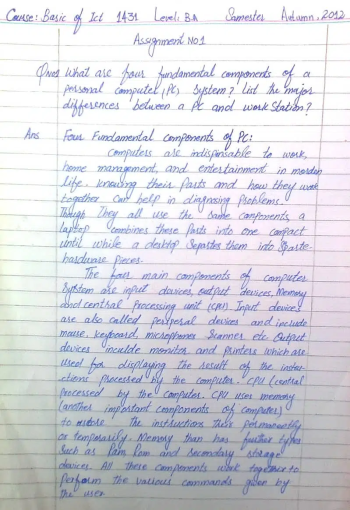 Course: Basic of Ict 1431 Level: B.A Semester Autumn, 2012
Assignment No1
Qno1 What are four fundamental components of a
personal computer (PC) System? List the major
differences between a PC and work Station?
Ans Four Fundamental components of PC:
Computers are indispensable to work,
home management, and entertainment in mordan
life. knowing their Parts and how they work
together can help in diagnosing Problems.
Though They all use the same components, a
laptop combines these Parts into one compact
until while a desktop Separtes them into Sparte-
hardware pieces.
The four main components of computer
System are input devices, output devices, Memory
and central Processing unit (CPU). Input devices
are also called periperal devices and include
mouse, keyboard, microphones Scanner etc Output
devices inculde monitor and printers which are
used for displaying the result of the instru-
ctions processed by the computer. CPU (central
processed by the Computer. CPU uses memory
(another important components of computer)
to restore the instructions then permanently
or temporarily. Memory than has further types
such as Ram Rom and Secondary storage
devices. All these components work together to
perform the various commands given by
the user